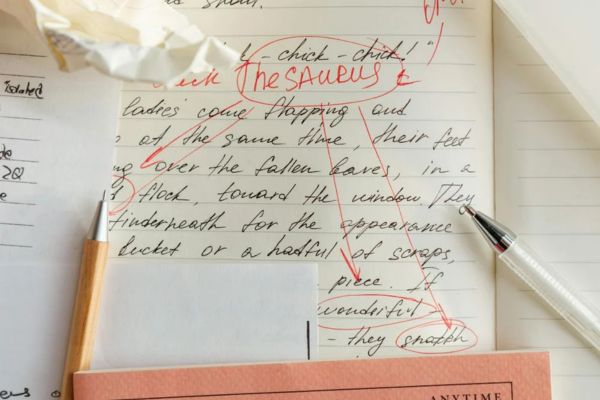 isolated
- chick - chick! "
THESAURUS
ladies' come flapping and
at the same time, their feet
over the fallen leaves, in a
flock, toward the window. They
underneath for the appearance
bucket or a hatful of scraps,
piece. If
wonderful -
- they snatch
ANYTIME